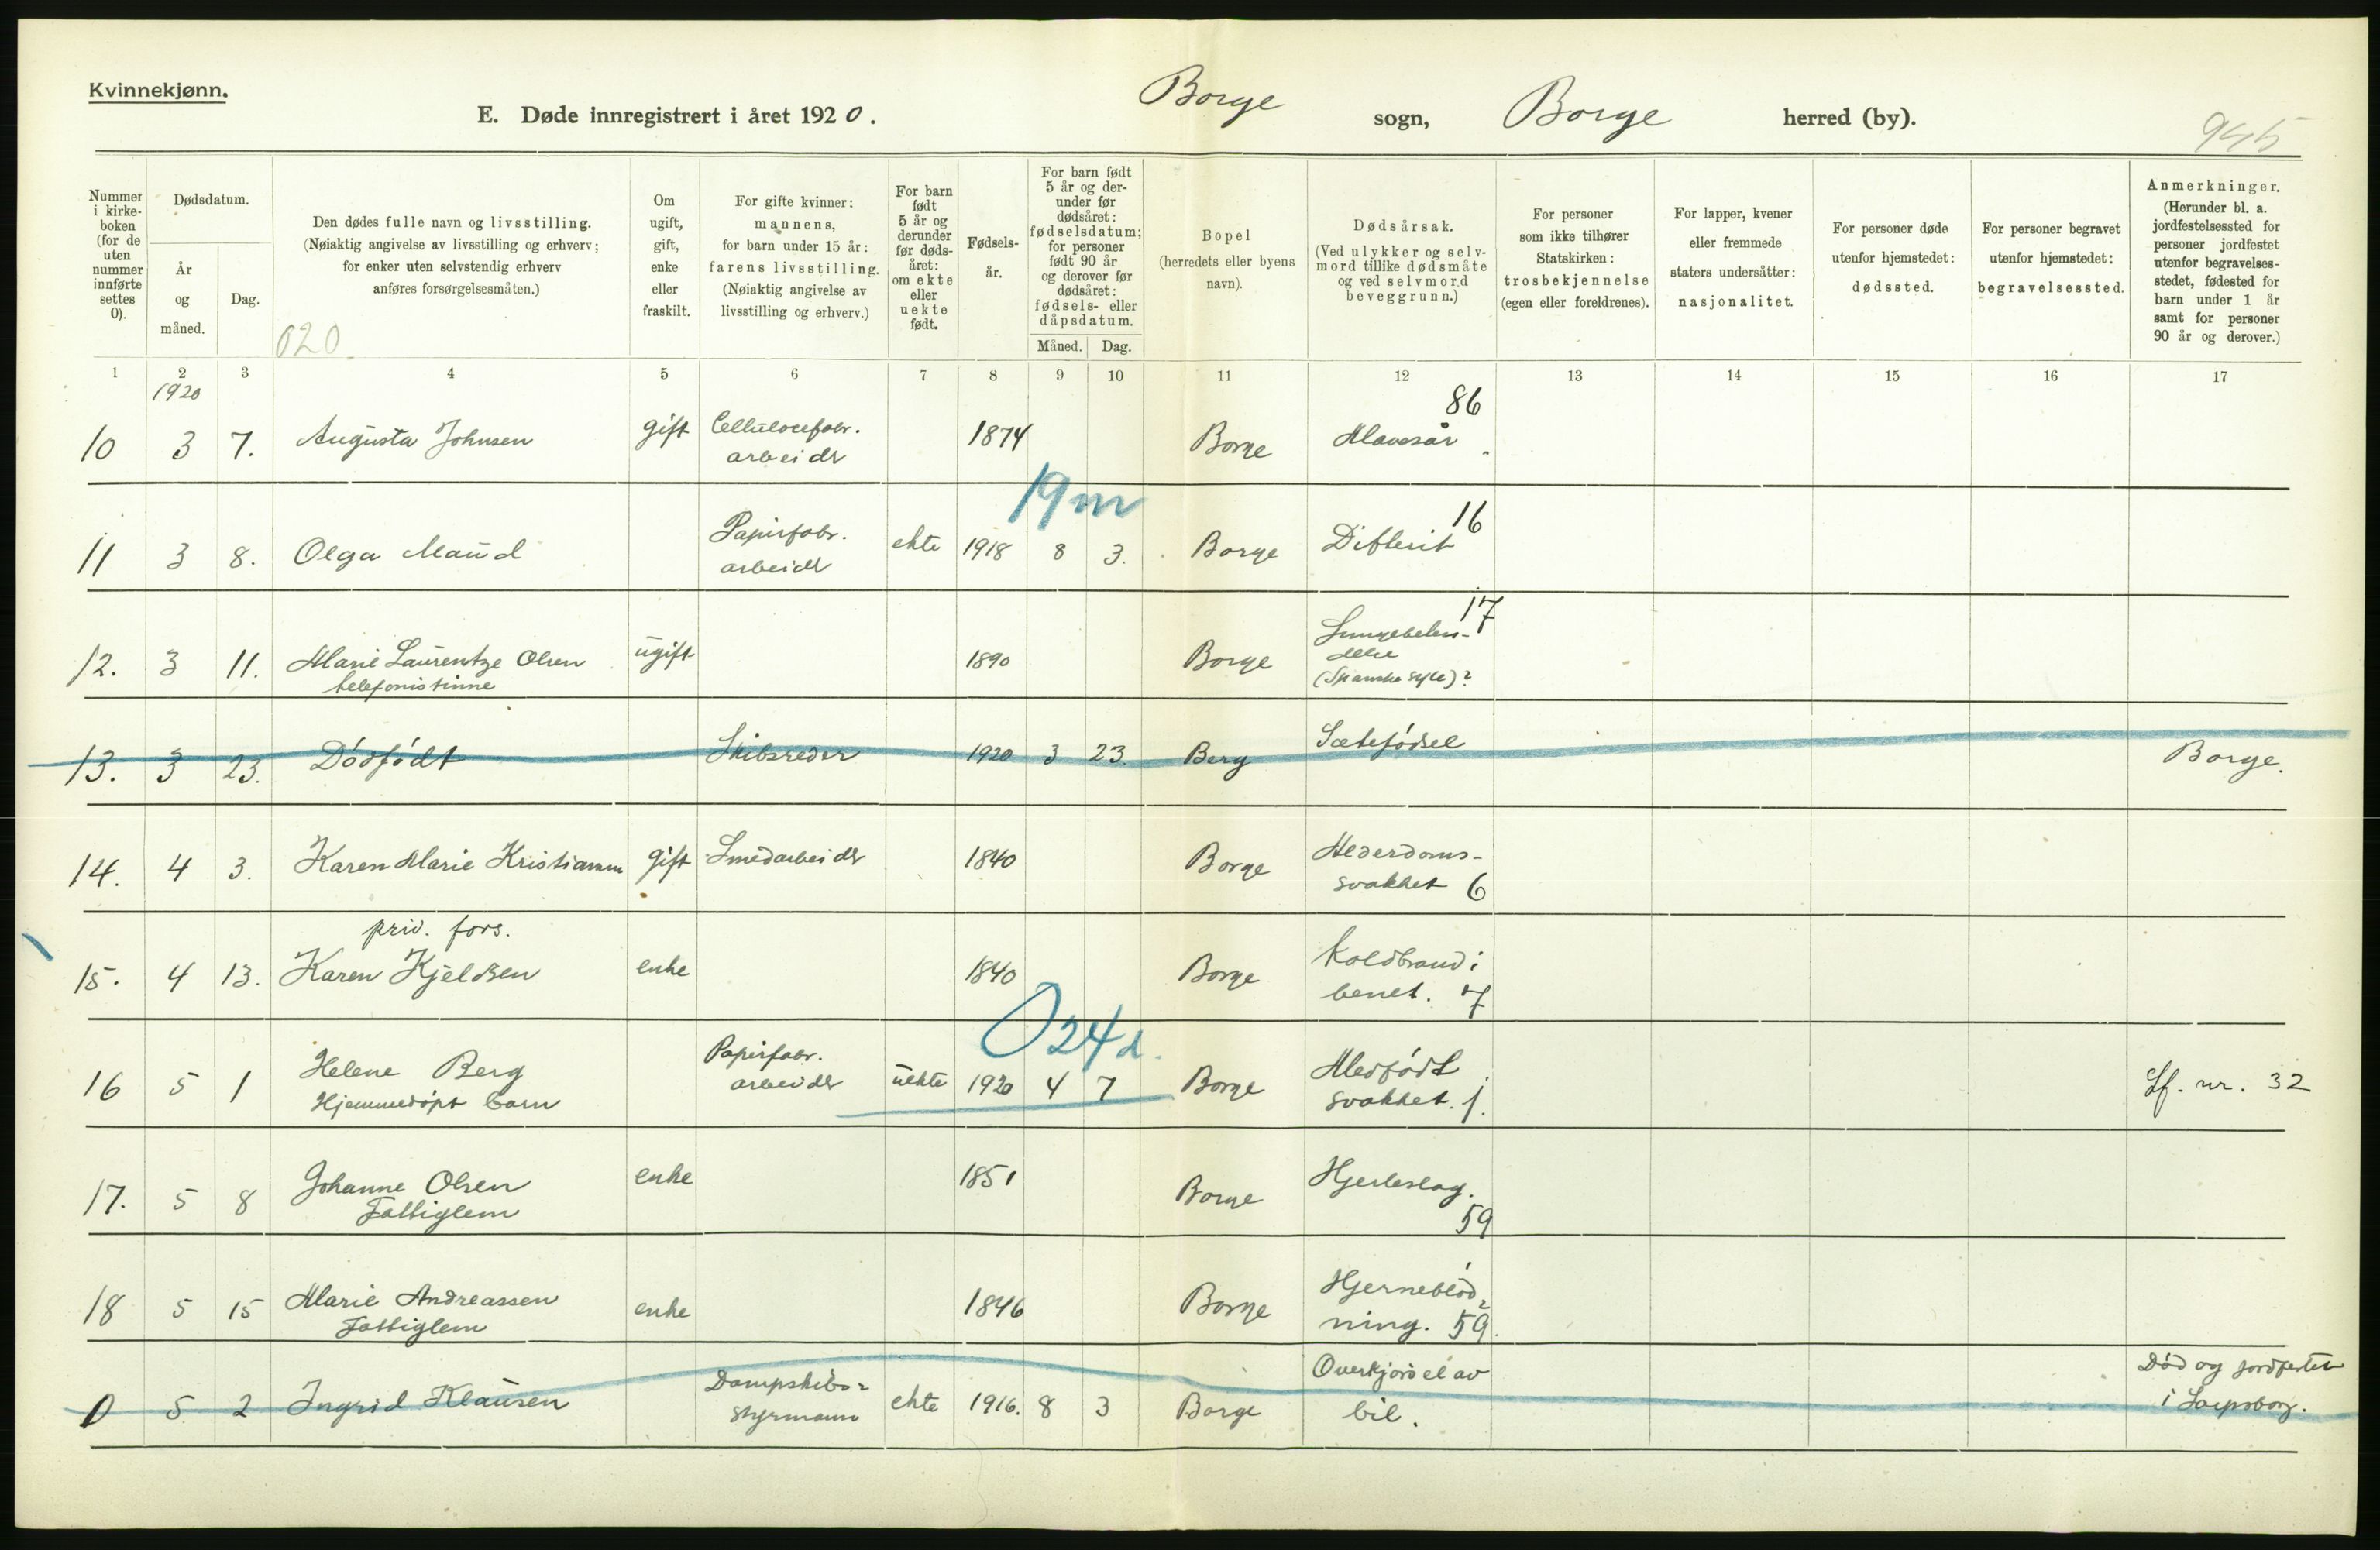 Kvinnekjønn.
E. Døde innregistrert i året 1920.
Borge sogn, Borge herred (by).
945
Nummer i kirke- boken (for de uten nummer innførte settes 0).
Dødsdatum.
År og måned.
Dag.
Den dødes fulle navn og livsstilling.
(Nøiaktig angivelse av livsstilling og erhverv;
for enker uten selvstendig erhverv
anføres forsørgelsesmåten.)
020
Om ugift, gift, enke eller fraskilt.
For gifte kvinner: mannens, for barn under 15 år: farens livsstilling. (Nøiaktig angivelse av livsstilling og erhverv.)
For barn født 5 år og derunder før døds- året: om ekte eller uekte født.
Fødsels- år.
For barn født 5 år og der- under før dødsåret: fødselsdatum; for personer født 90 år og derover før dødsåret: fødsels- eller dåpsdatum.
Måned. Dag.
Bopel (herredets eller byens navn).
Dødsårsak. (Ved ulykker og selv- mord tillike dødsmåte og ved selvmord beveggrunn.)
For personer som ikke tilhører Statskirken: trosbekjennelse (egen eller foreldrenes).
For lapper, kvener eller fremmede staters undersåtter: nasjonalitet.
For personer døde utenfor hjemstedet: dødssted.
For personer begravet utenfor hjemstedet: begravelsessted.
Anmerkninger. (Herunder bl. a. jordfestelsessted for personer jordfestet utenfor begravelses- stedet, fødested for barn under 1 år samt for personer 90 år og derover.)
1 2 3 4 5 6 7 8 9 10 11 12 13 14 15 16 17
1920
10 3 7. Augusta Johnsen gift Cellulosefabr. arbeider 1874 Borge Mavesår. 86
19 m
11 3 8. Olga Maud Papirfabr. arbeider ekte 1918 8 3. Borge Difterit 16
12. 3 11. Marie Laurentze Olsen telefonistinne ugift 1890 Borge Lungebeten- delse (Spanske syke)? 17
13. 3 23. Dødfødt Skibsreder 1920 3 23. Berg Sætefødsel Borge.
14. 4 3. Karen Marie Kristiansen gift Smedarbeider 1840 Borge Alderdoms- svakhet 6
priv. fors.
15. 4 13. Karen Kjeldsen enke 1840 Borge Koldbrand i benet. 7
0 24 d.
16 5 1 Helene Berg Hjemmedøpt barn Papirfabr. arbeider uekte 1920 4 7 Borge Medfødt svakhet. 1. Lf. nr. 32
17. 5 8 Johanne Olsen Fattiglem enke 1851 Borge Hjerteslag. 59
18 5 15 Marie Andreassen Fattiglem enke 1846 Borge Hjerneblød- ning. 59.
0 5 2 Ingrid Klausen Dampskibs- styrmann ekte 1916. 8 3 Borge Overkjørsel av bil. Død og jordfestet i Sarpsborg.